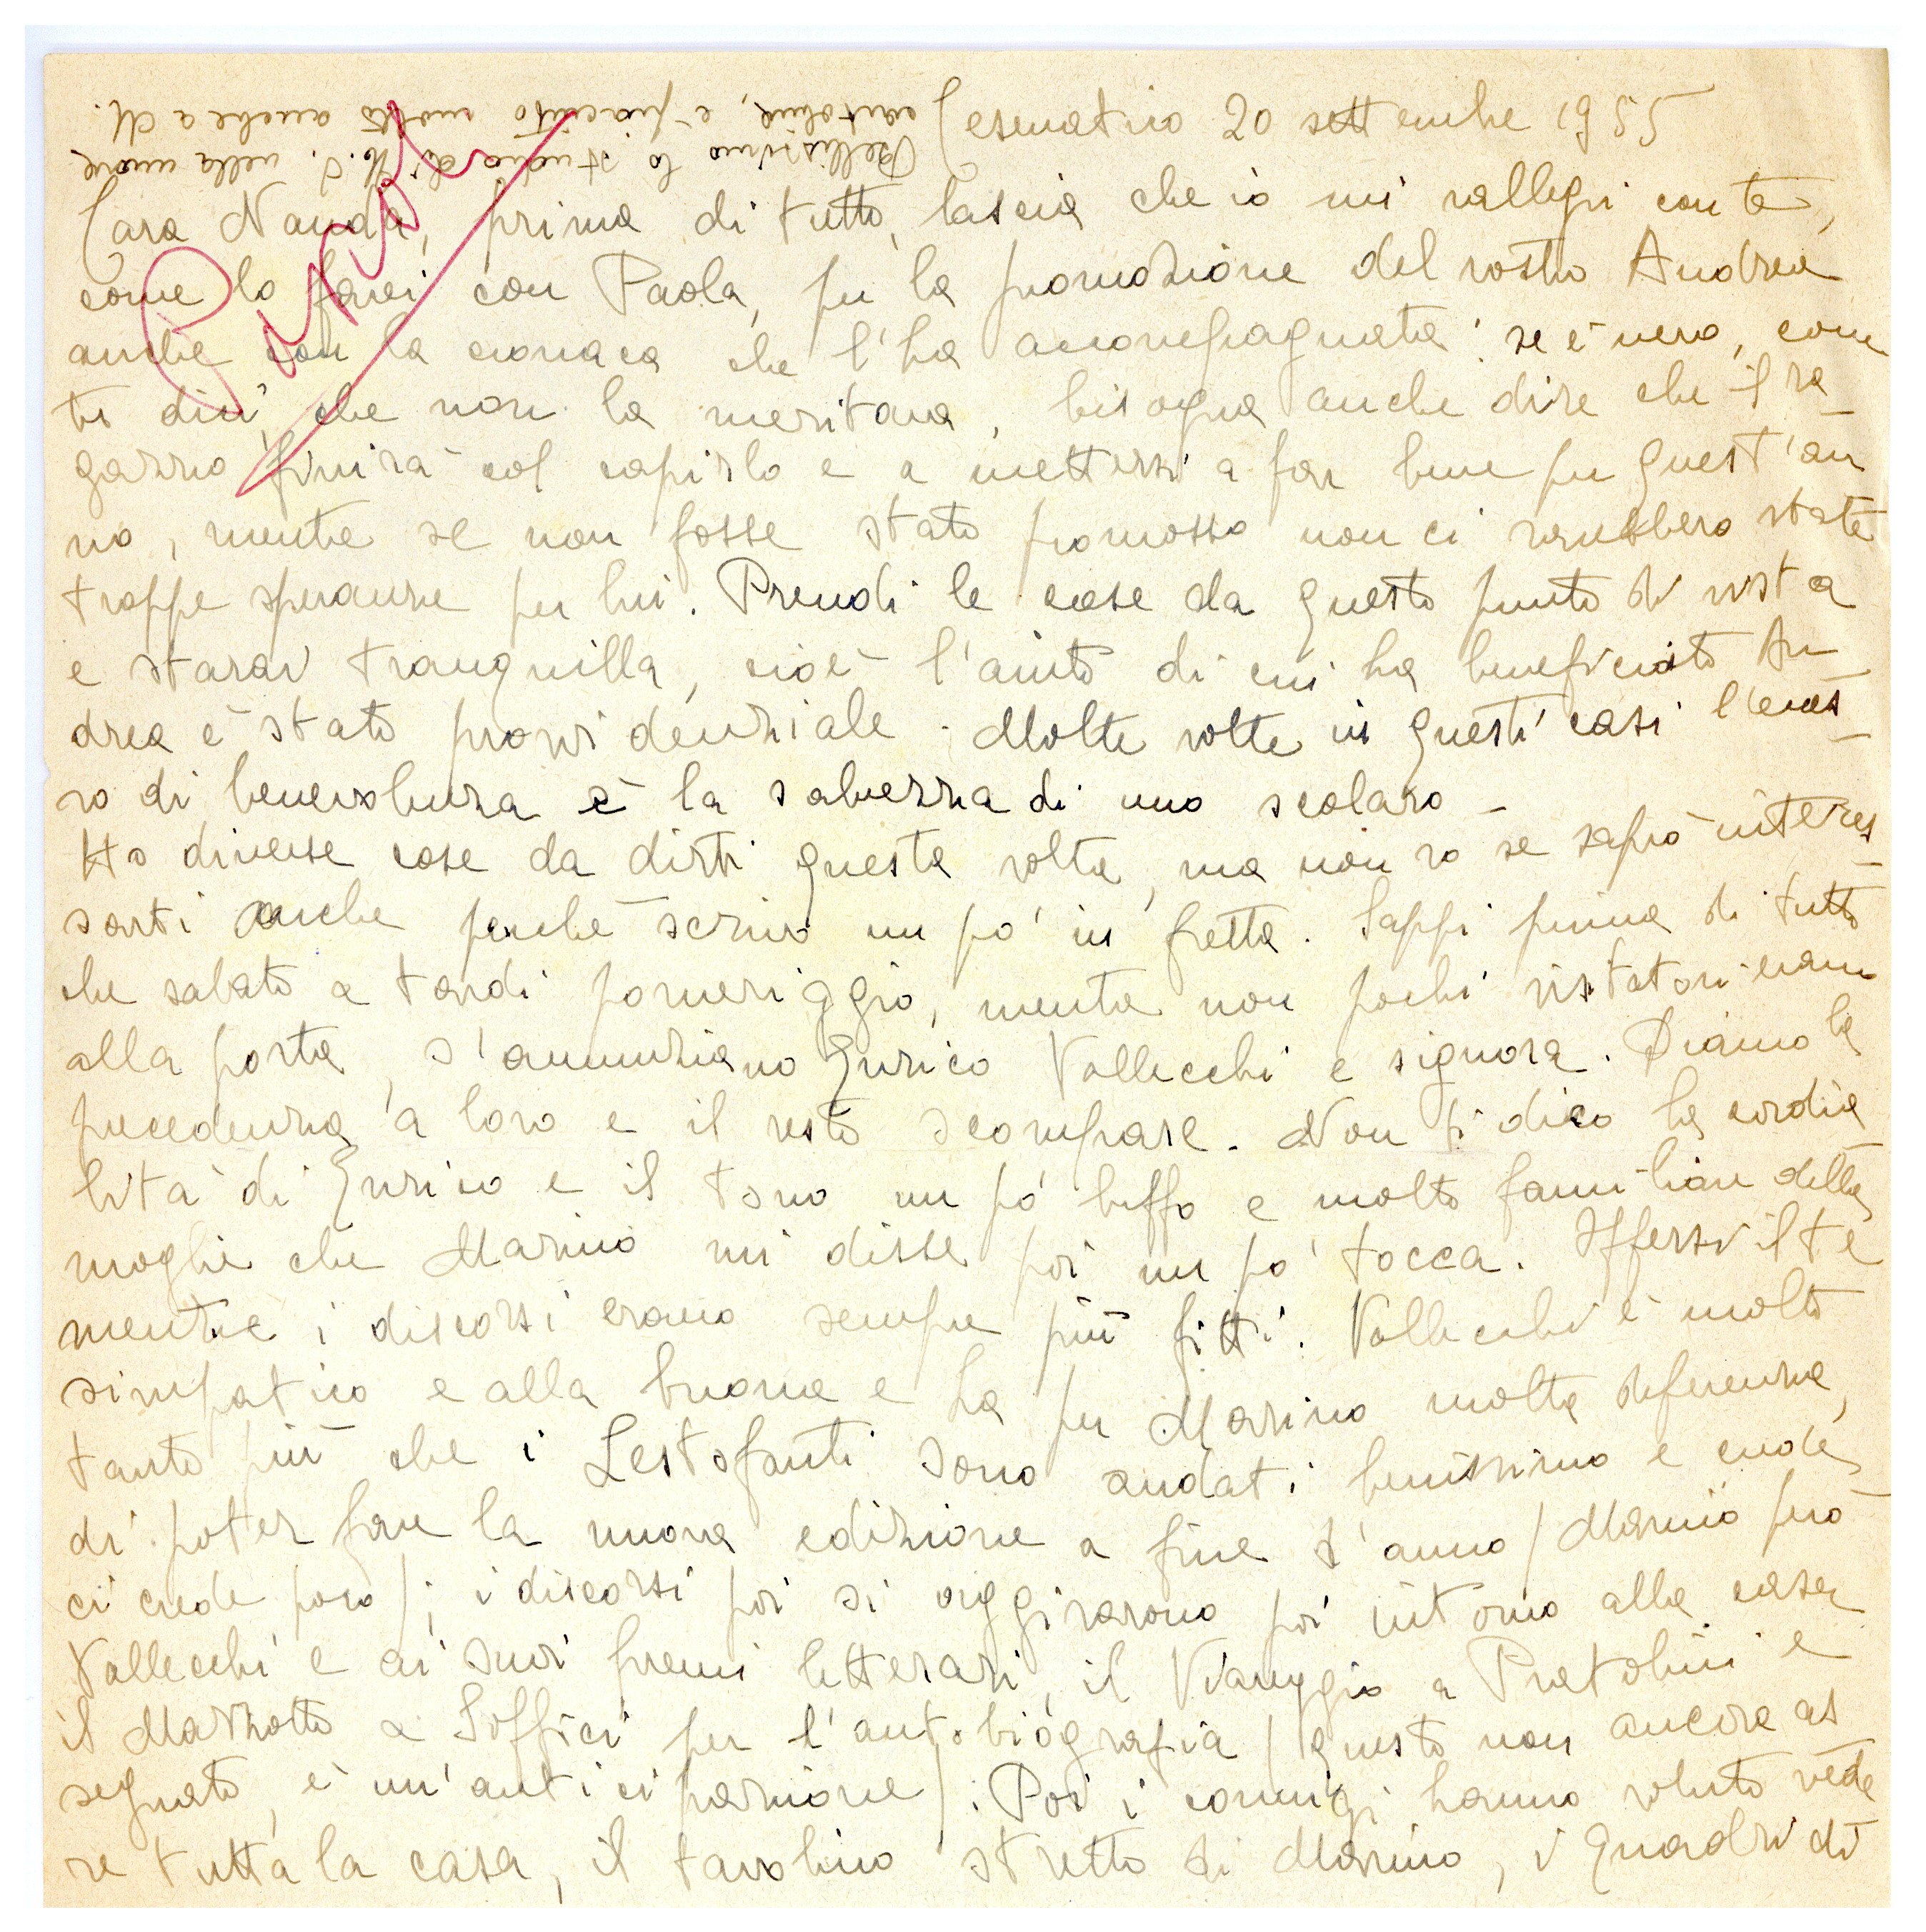 Cesenatico 20 settembre 1955
Bellissimo lo studio di M. P. nella nuova
cartolina, è piaciuto molto anche a M.
Cara Nanda, prima di tutto, lascia che io mi rallegri con te,
come lo farei con Paola, per la promozione del vostro Andrea
anche con la cronaca che l'ha accompagnata: se è vero, come
tu dici, che non la meritava, bisogna anche dire che il ra-
gazzo finirà col capirlo e a mettersi a far bene per quest'an
no, mentre se non fosse stato promosso non ci sarebbero state
troppe speranze per lui. Prendi le cose da questo punto di vista
e starai tranquilla, cioè l'aiuto di cui ha beneficiato An-
drea è stato provvidenziale. Molte volte in questi casi l'eces-
so di benevolenza è la salvezza di uno scolaro -
Ho diverse cose da dirti questa volta, ma non so se saprò interes-
sarti anche perché scrivo un po' in fretta. Sappi prima di tutto
che sabato a tardi pomeriggio, mentre non pochi visitatori erano
alla porta, s'annunziano Enrico Vallecchi e signora. Diamo la
precedenza a loro e il resto scompare. Non ti dico la cordia-
lità di Enrico e il tono un po' buffo e molto familiare della
moglie che Marino mi disse poi un po' tocca. Offersi il tè
mentre i discorsi erano sempre più fitti. Vallecchi è molto
simpatico e alla buona e ha per Marino molta deferenza,
tanto più che i Lestofanti sono andati benissimo e crede
di poter fare la nuova edizione a fine d'anno / Marino però
ci crede poco /; i discorsi poi si aggirarono poi intorno alla casa
Vallecchi e ai suoi premi letterari, il Viareggio a Pratolini e
il Marzotto a Soffici per l'autobiografia / questo non ancora as
segnato, è un'anticipazione /. Poi i coniugi hanno voluto vede
re tutta la casa, il tavolino stretto di Marino, i quadri di
Panzini